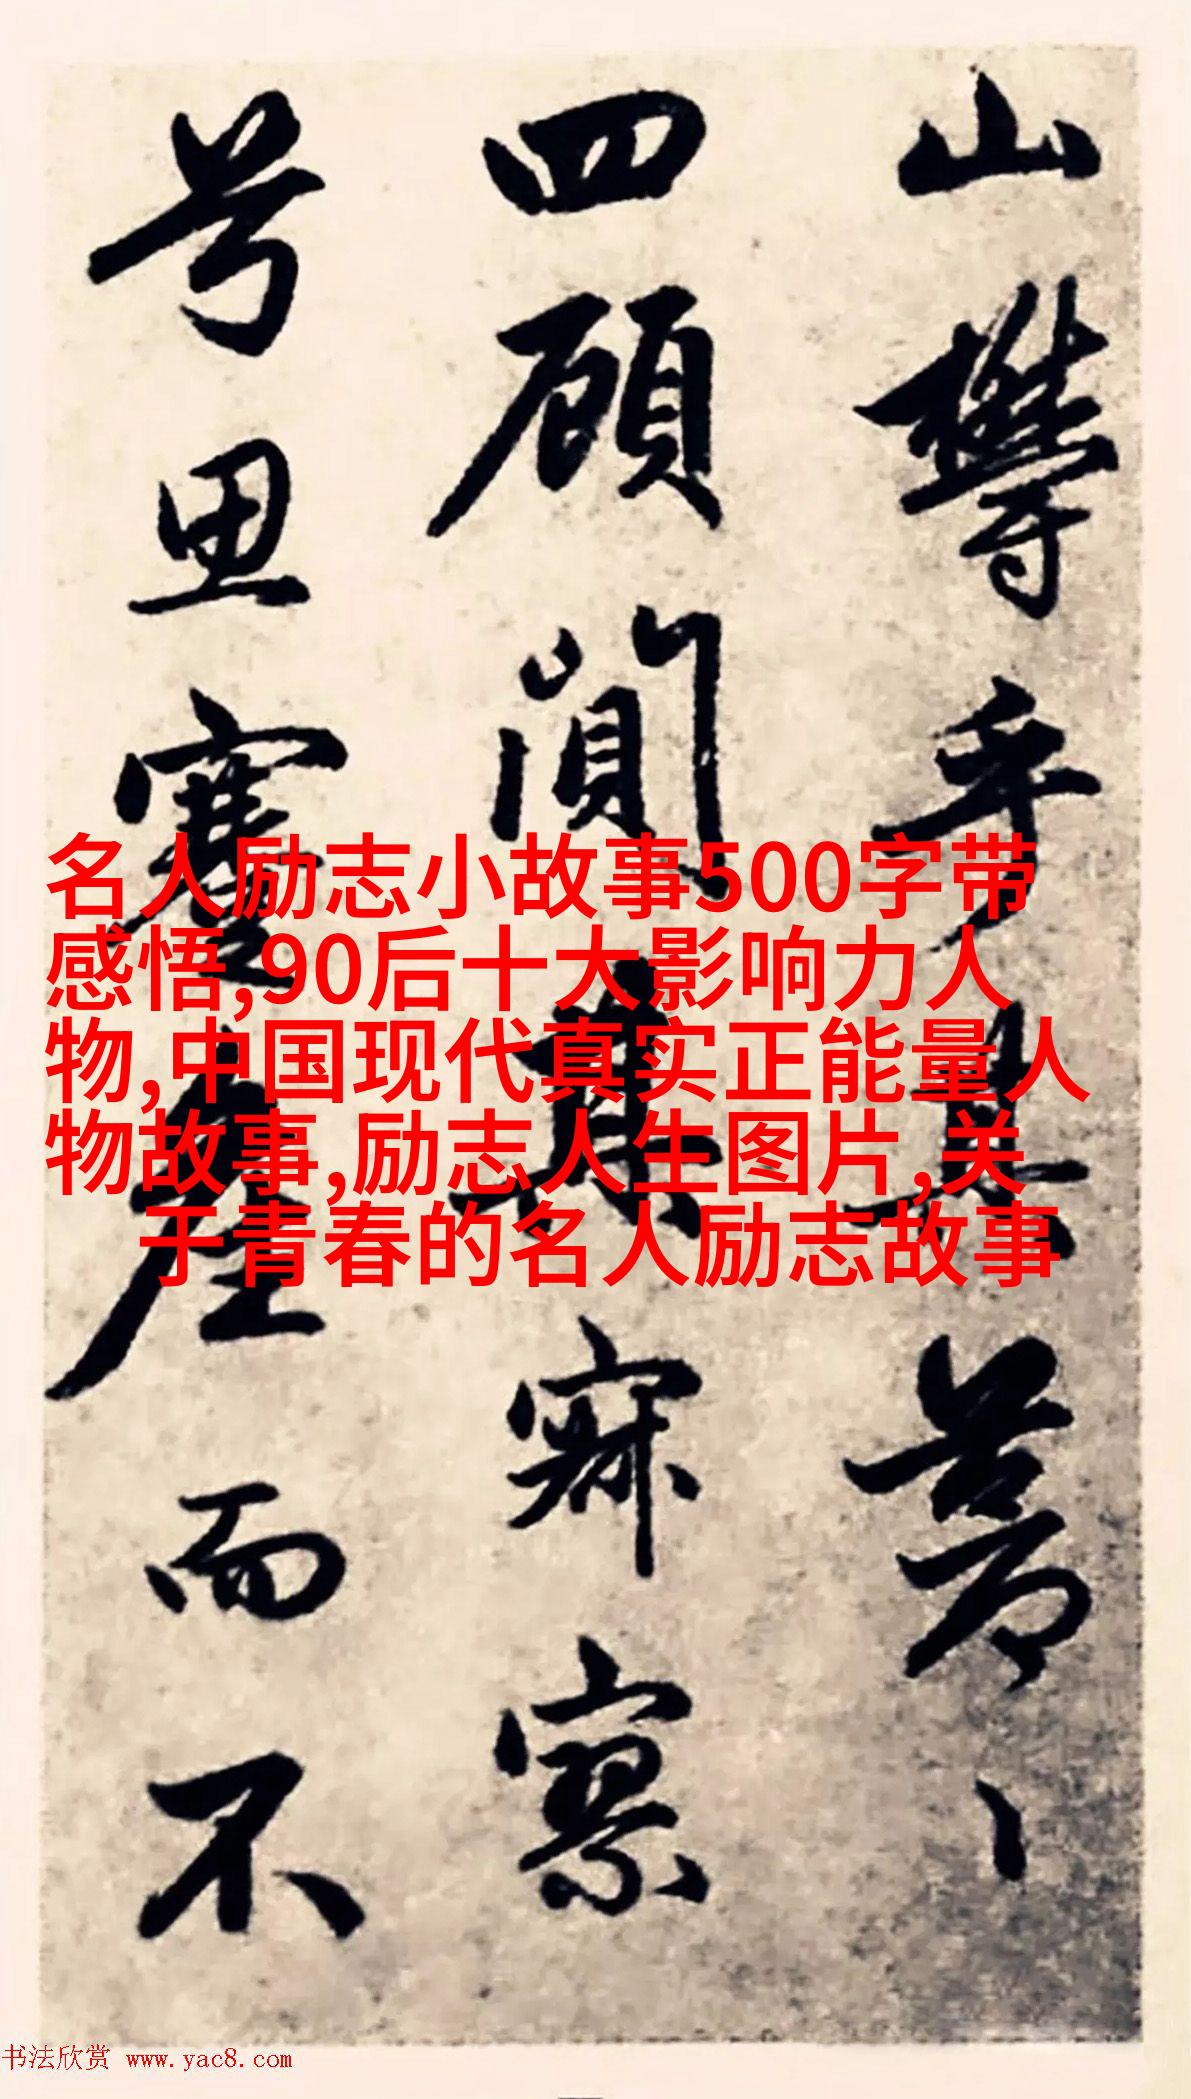 山欝乎其蒼々
四顧闃其寂寥
兮思蹇產而不
名人励志小故事500字带
感悟,90后十大影响力人
物,中国现代真实正能量人
物故事,励志人生图片,关
于青春的名人励志故事
书法欣赏 www.yac8.com